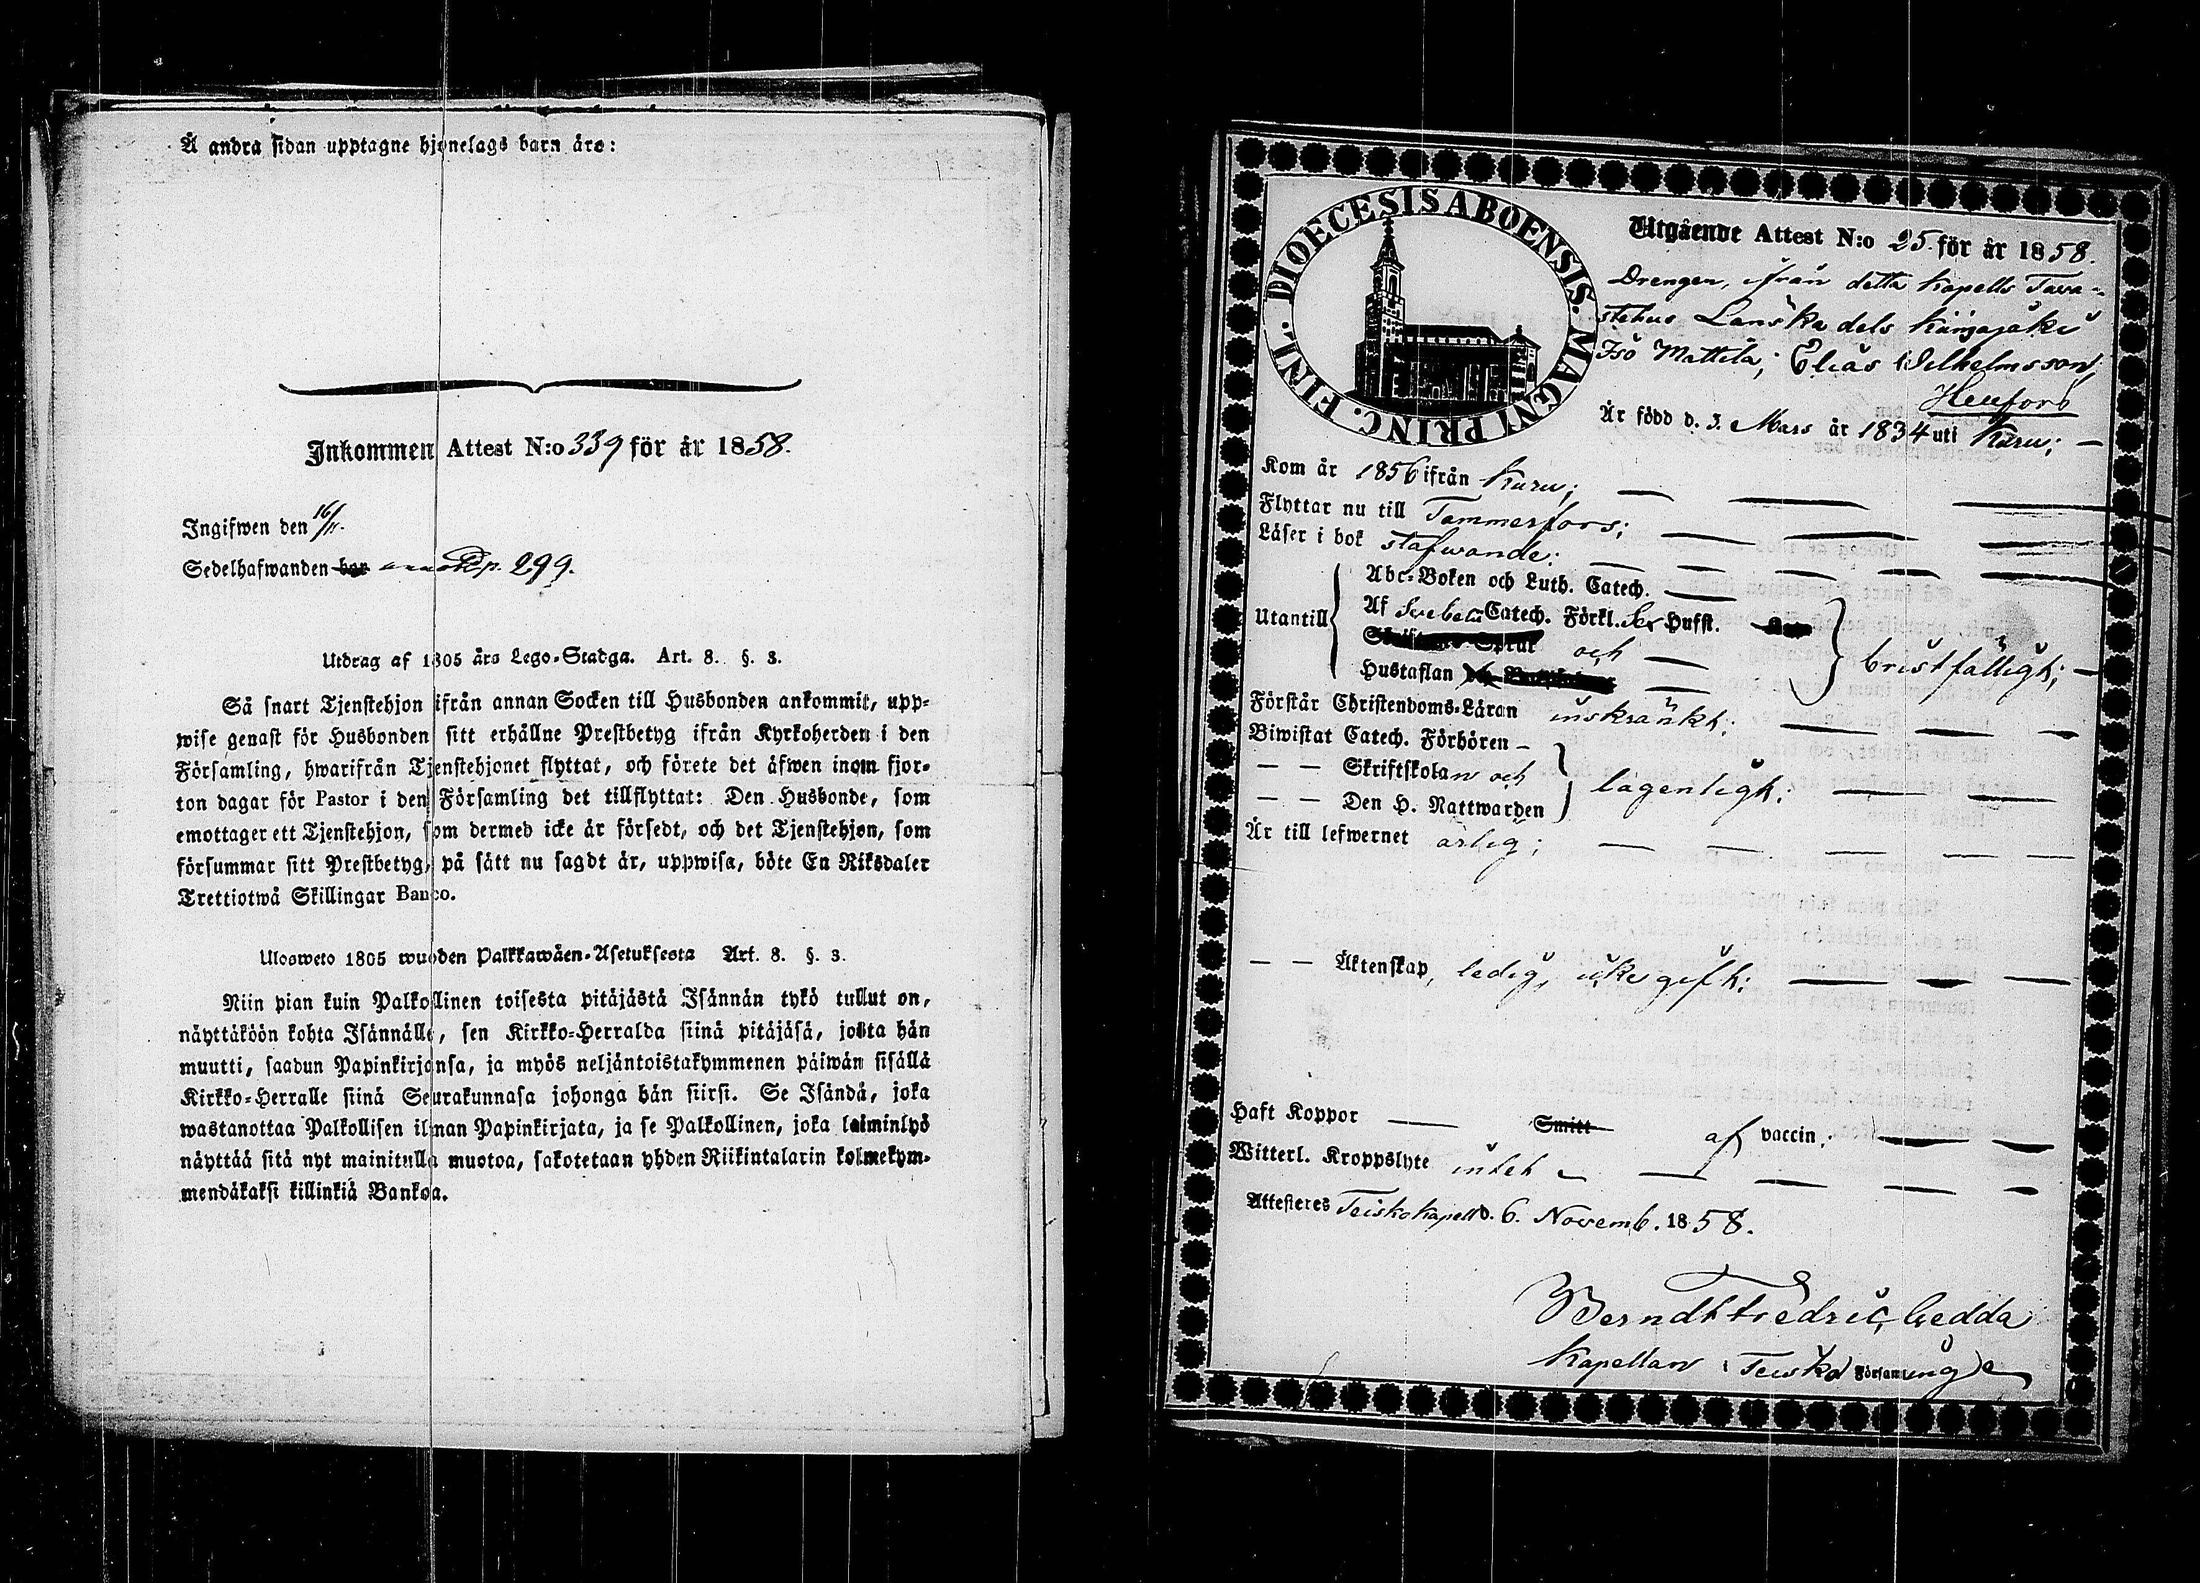 Å andra sidan upptagne hjonelags barn äro:
Inkommen Attest N:o 339 för år 1858.
Ingifwen den 16/11.
Sedelhafwanden har p. 299.
Utdrag af 1805 års Lego-Stadga. Art. 8. §. 3.
Så snart Tjenstehjon ifrån annan Socken till Husbonden ankommit, upp-
wise genast för Husbonden sitt erhållne Prestbetyg ifrån Kyrkoherden i den
Församling, hwarifrån Tjenstehjonet flyttat, och förete det äfwen inom fjor-
ton dagar för Pastor i den Församling det tillflyttat: Den Husbonde, som
emottager ett Tjenstehjon, som dermed icke är försedt, och det Tjenstehjon, som
försummar sitt Prestbetyg, på sätt nu sagdt är, uppwisa, böte En Riksdaler
Trettiotwå Skillingar Banco.
Ulosweto 1805 wuoden Palkkawäen-Asetuksesta Art. 8. §. 3.
Niin pian kuin Palkollinen toisesta pitäjästä Isännän tykö tullut on,
näyttäköön kohta Isännälle, sen Kirkko-Herralda siinä pitäjäsä, josta hän
muutti, saadun Papinkirjansa, ja myös neljäntoistakymmenen päiwän sisällä
Kirkko-Herralle siinä Seurakunnasa johonga hän siirsi. Se Isändä, joka
wastanottaa Palkollisen ilman Papinkirjata, ja se Palkollinen, joka laiminlyö
näyttää sitä nyt mainitulla muotoa, sakotetaan yhden Riikintalarin kolmekym-
mendäkaksi killinkiä Bankoa.
DIOECESIS ABOENSIS. MAGNI PRINC. FINL.
Utgående Attest N:o 25. för år 1858.
Drengen, ifrån detta Kapells Tava-
stehus Länska dels Kämajäki
Iso Mattila; Elias Wilhelmsson,
Hellfors
Är född d. 3. Mars år 1834 uti Kuru; —
Kom år 1856 ifrån Kuru;
Flyttar nu till Tammerfors;
Läser i bok stafwande:
Utantill
Abc-Boken och Luth. Catech.
Af Svebelii Catech. Förkl. Sex Hufst.
och
Hustaflan
bristfälligt; —
Förstår Christendoms-Läran inskränkt:
Biwistat Catech. Förhören –
— — Skriftskolan och
— — Den H. Nattwarden
lagenligt:
Är till lefwernet ärlig;
— — Äktenskap, ledig, icke gift:
Haft Koppor — Smitt af vaccin:
Witterl. Kroppslyte intet
Attesteres Teisko kapell d. 6. Novemb. 1858.
Berndt Fredric Gedda
Kapellan i Teisko Församling